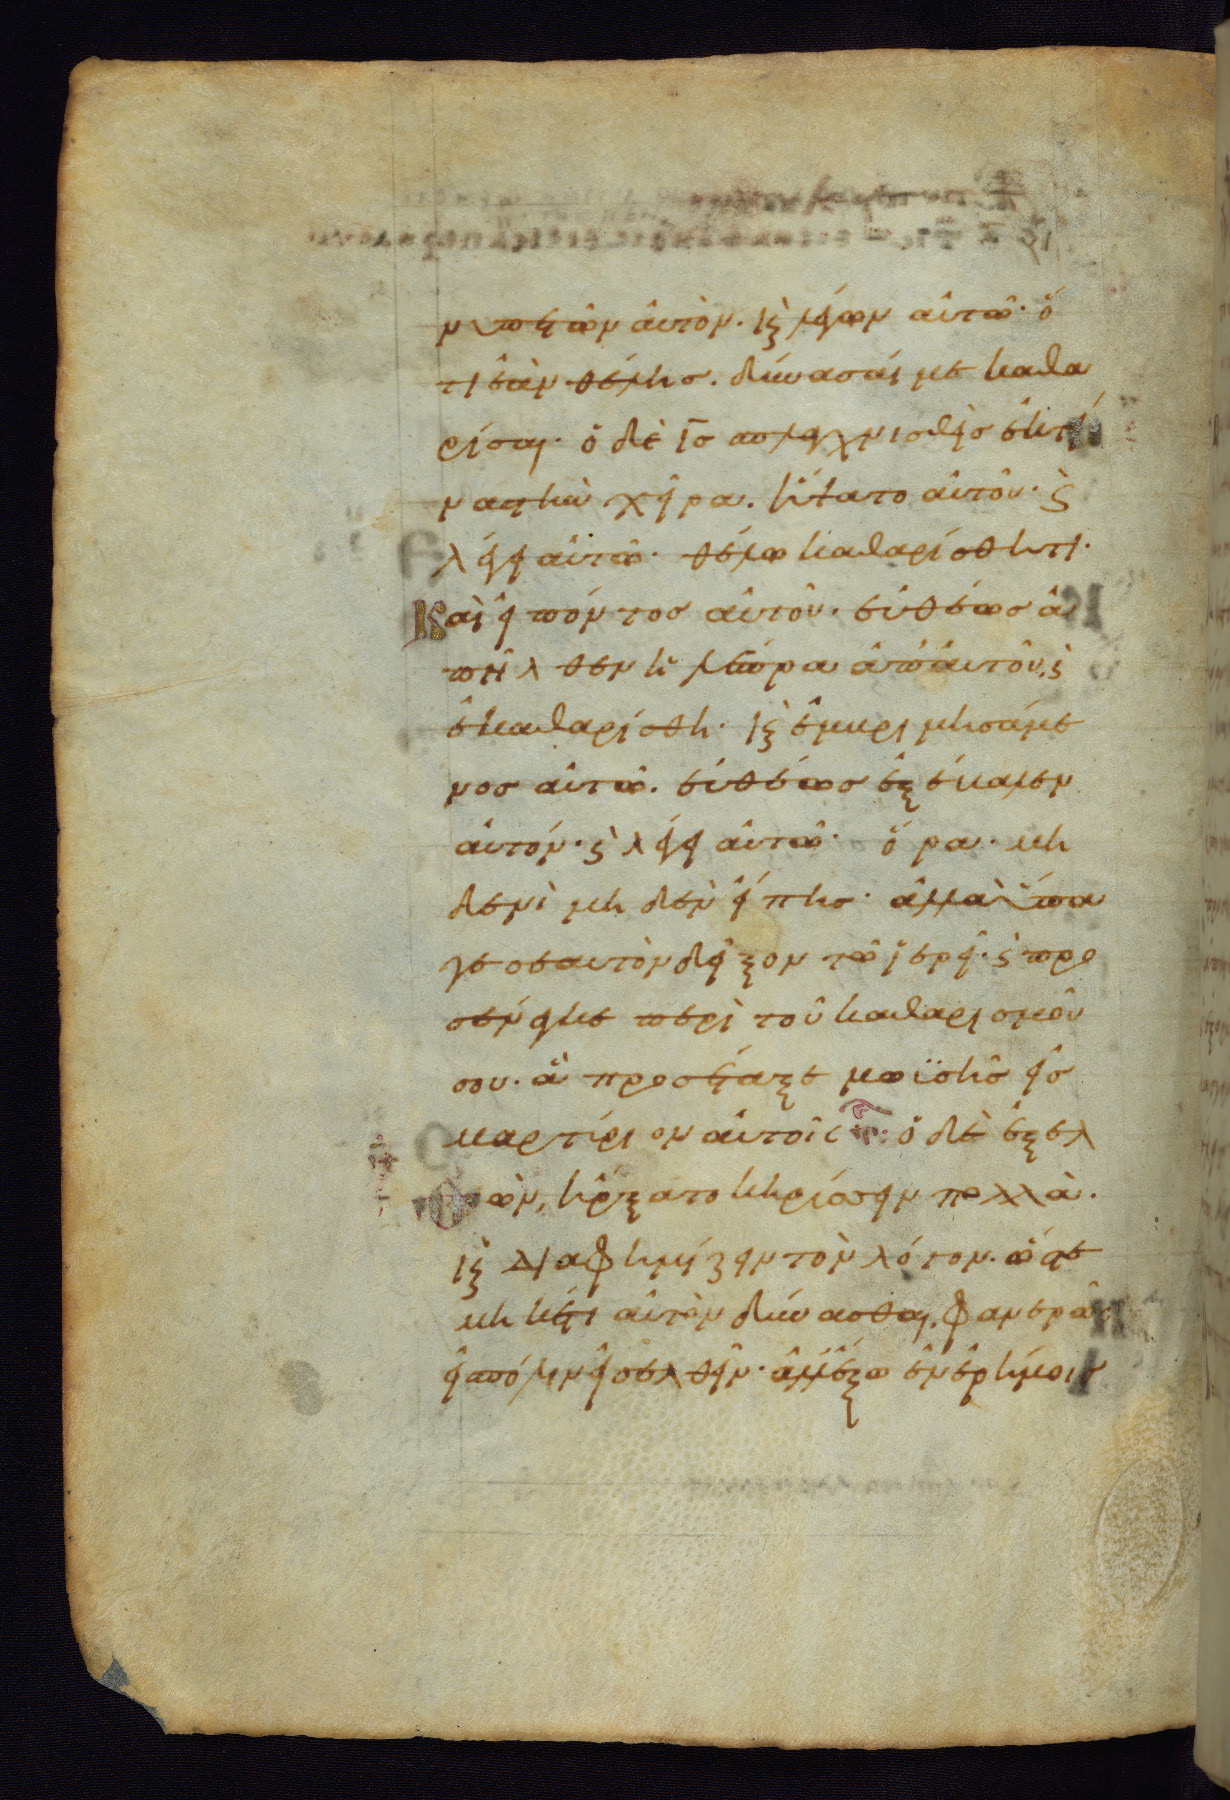 νυπετῶν αὐτὸν· κ(αὶ) λέγων αὐτῶ· ὅ
τι ἐὰν θέλης. δύνασαί με καθα
ρίσαι· ὁ δὲ ι̅σ̅ σπλαγχνισθεὶς ἐκτεί
νας τὴν χεῖρα. ἥψατο αὐτοῦ· κ(αὶ)
λέγει αὐτῶ· θέλω καθαρίσθητι·
Καὶ εἰπόντος αὐτοῦ· εὐθέως ἀ
πῆλθεν ἡ λέπρα ἀπ' αὐτοῦ, κ(αὶ)
ἐκαθαρίσθη· κ(αὶ) ἐμβριμησάμε
νος αὐτῶ. εὐθέως ἐξέβαλεν
αὐτόν· κ(αὶ) λέγει αὐτῶ· ὅρα· μη
δενὶ μηδὲν εἴπης· ἀλλὰ ὕπα
γε σεαυτὸν δεῖξον τῶ ἱερεῖ· κ(αὶ) προ
σένεγκε περὶ τοῦ καθαρισμοῦ
σου· ἃ προσέταξε μωϊσῆς εἰς
μαρτύριον αὐτοῖς· ὁ δὲ ἐξελ
θὼν, ἤρξατο κηρύσσειν πολλὰ·
κ(αὶ) διαφημίζειν τὸν λόγον· ὥστε
μηκέτι αὐτὸν δύνασθαι, φανερῶς
εἰς πόλιν εἰσελθεῖν· ἀλλ' ἔξω ἐν ἐρήμοις